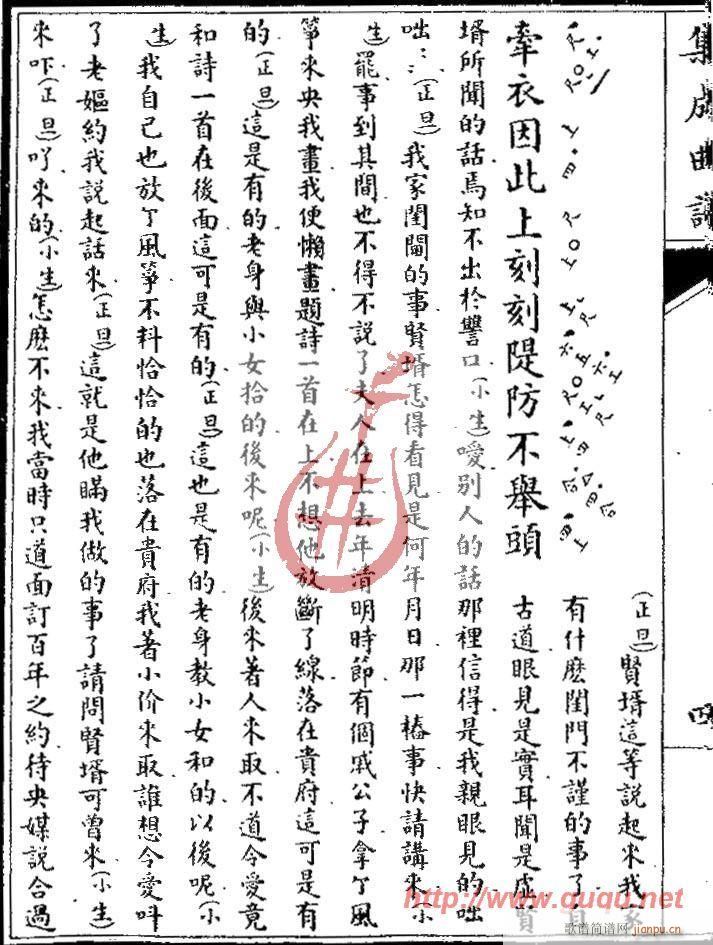 集成曲譜
四
牽衣因此上刻刻隄防不舉頭
(正旦)賢壻這等說起來我家
有什麽閨門不謹的事了自
古道眼見是實耳聞是虛賢
壻所聞的話焉知不出於讐口(小生)嗳别人的話那裡信得是我親眼見的咄
咄〻(正旦)我家閨閫的事賢壻怎得看見是何年月日那一樁事快請講來(小
生)罷事到其間也不得不說了夫人在上去年清明時節有個戚公子拿了風
箏來央我畫我便懶畫題詩一首在上不想他放斷了線落在貴府這可是有
的(正旦)這是有的老身與小女拾的後來呢(小生)後來著人來取不道令愛竟
和詩一首在後面這可是有的(正旦)這也是有的老身教小女和的以後呢(小
生)我自己也放了風箏不料恰恰的也落在貴府我著小价來取誰想令愛叫
了老嫗約我說起話來(正旦)這就是他瞞我做的事了請問賢壻可曾來(小生)
來吓(正旦)吖來的(小生)怎麽不來我當時只道面訂百年之約待央媒說合過
http://www.ququ.net
歌谱简谱网
jianpu.cn